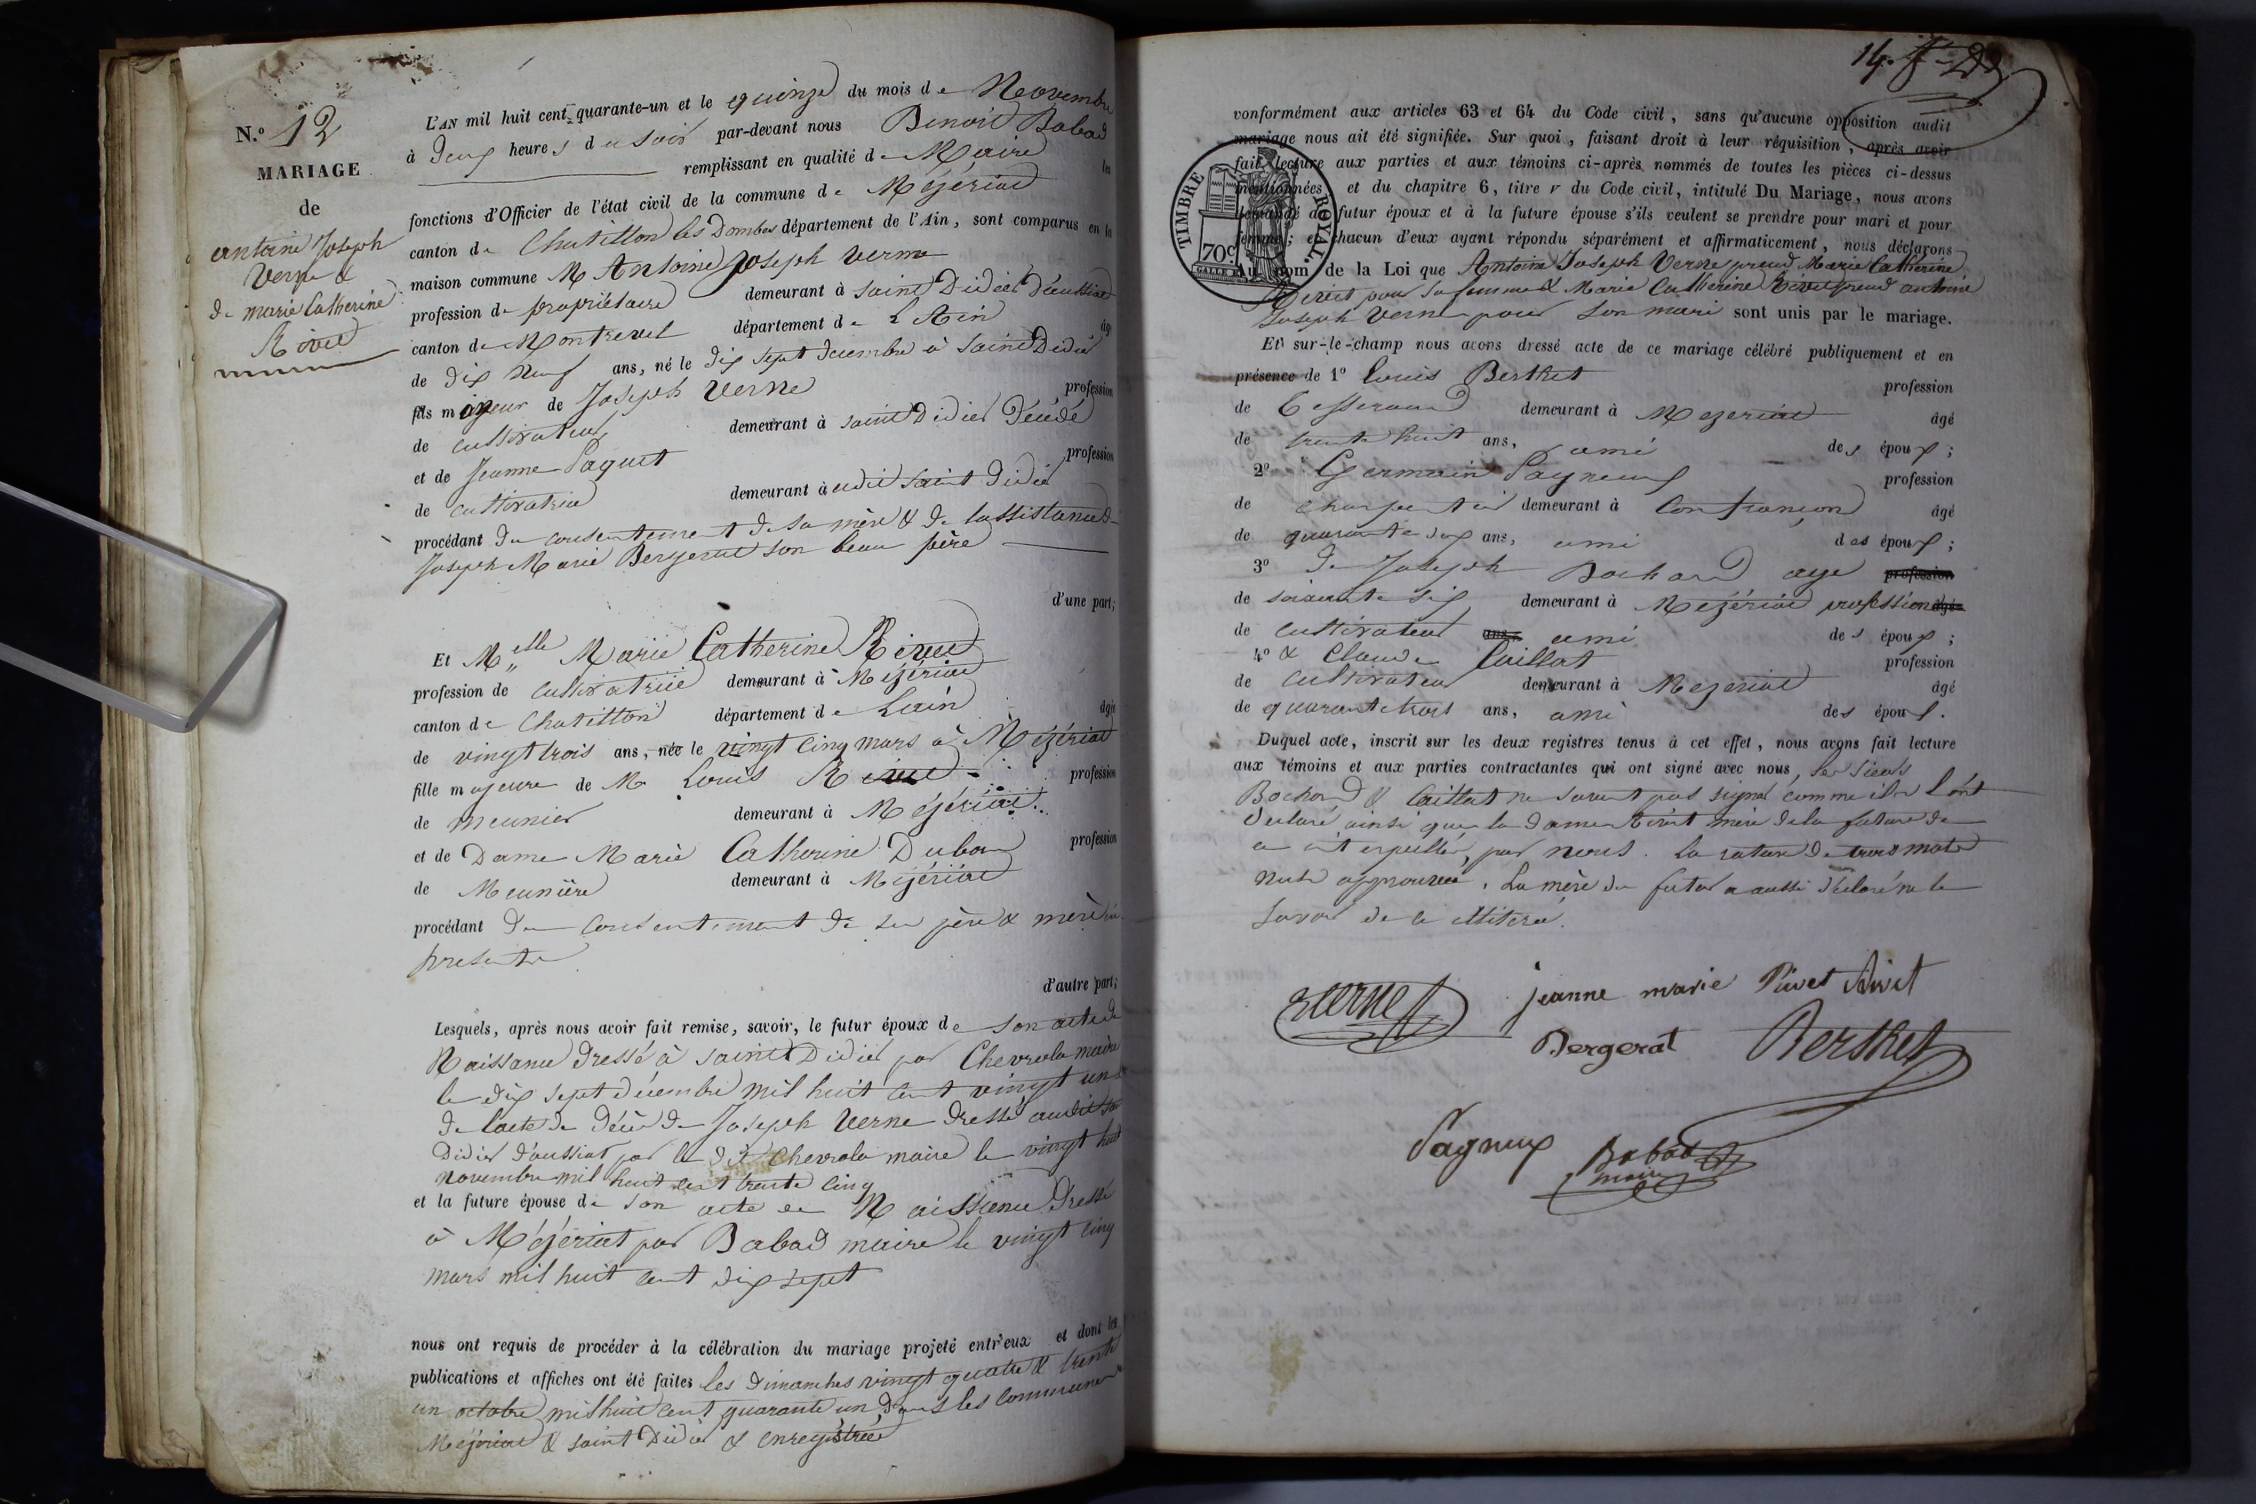 N.o 12
MARIAGE
de
antoine Joseph
Verne &
de marie Catherine
Rivet
L'AN mil huit cent quarante-un et le quinze du mois de Novembre
à deux heures du soir par-devant nous Benoit Babad
remplissant en qualité de Maire les
fonctions d'Officier de l'état civil de la commune de Mézériat
canton de Chatillon les Dombes département de l'Ain, sont comparus en la
maison commune M Antoine Joseph Verne
profession de propriétaire demeurant à saint Didier d'aussiat
canton de Montrevel département de L'Ain âgé
de dix neuf ans, né le dix sept decembre à Saint Didier
fils mineur de Joseph Verne profession
de cultivateur demeurant à saint Didier Décédé
et de Jeanne Paquet profession
de cultivatrice demeurant à udit saint Didier
procédant du consentement de sa mère & de lassistance de
Joseph Marie Bergerat son beau père
d'une part;
Et Melle Marie Catherine Rivet
profession de cultivatrice demeurant à Mézériat
canton de Chatillon département de Lain âgée
de vingt trois ans, née le vingt cinq mars à Mézériat
fille majeure de Mr Louis Rivet profession
de meunier demeurant à Mézériat
et de Dame Marie Catherine Dubon profession
de Meunière demeurant à Mézériat
procédant du consentement de ses père & mère ici
presents
d'autre part;
Lesquels, après nous avoir fait remise, savoir, le futur époux de son acte de
Naissance dressé à saint Didier par Chevrola maire
le dix sept décembre mil huit cent vingt un &
de lacte de décès de Joseph Verne dressé audit St
Didier d'aussiat par le dit Chevrola maire le vingt huit
novembre mil huit cent trente cinq
et la future épouse de son acte de Naissance dressé
à Mézériat par Babad maire le vingt cinq
mars mil huit cent dix sept
nous ont requis de procéder à la célébration du mariage projeté entr'eux et dont les
publications et affiches ont été faites les dimanches vingt quatre & trente
un octobre mil huit cent quarante un dans les communes de
Mézériat & saint Didier & enregistrée
14.
conformément aux articles 63 et 64 du Code civil, sans qu'aucune opposition audit
mariage nous ait été signifiée. Sur quoi, faisant droit à leur réquisition, après avoir
fait lecture aux parties et aux témoins ci-après nommés de toutes les pièces ci-dessus
mentionnées, et du chapitre 6, titre v du Code civil, intitulé Du Mariage, nous avons
demandé au futur époux et à la future épouse s'ils veulent se prendre pour mari et pour
femme; et chacun d'eux ayant répondu séparément et affirmativement, nous déclarons
Au nom de la Loi que Antoine Joseph Verne prend Marie Catherine
Rivet pour sa femme & Marie Catherine Rivet prend antoine
Joseph Verne pour son mari sont unis par le mariage.
TIMBRE ROYAL.
70c
Et sur-le-champ nous avons dressé acte de ce mariage célébré publiquement et en
présence de 1o Louis Berthet profession
de Tisserand demeurant à Mezeriat âgé
de trente huit ans, ami des époux;
2o Germain Pagneux profession
de charpentier demeurant à Confrançon âgé
de quarante six ans, ami des époux;
3o de Joseph Bochard age profession
de soixante six demeurant à Mézériat profession âgé
de cultivateur ans, ami des époux;
4o & Claude Caillat profession
de cultivateur demeurant à Mezeriat âgé
de quarante trois ans, ami des époux.
Duquel acte, inscrit sur les deux registres tenus à cet effet, nous avons fait lecture
aux témoins et aux parties contractantes qui ont signé avec nous, les sieurs
Bochard & Caillat ne savent pas signer comme ils l'ont
déclaré ainsi que la dame Rivet mère de la future de
ce interpellés, par nous. la rature de trois mots
nuls approuvée. La mère du futur a aussi déclaré ne le
savoir de ce
verne jeanne marie Rivet Rivet
Bergerat Berthet
Pagneux Babad
maire